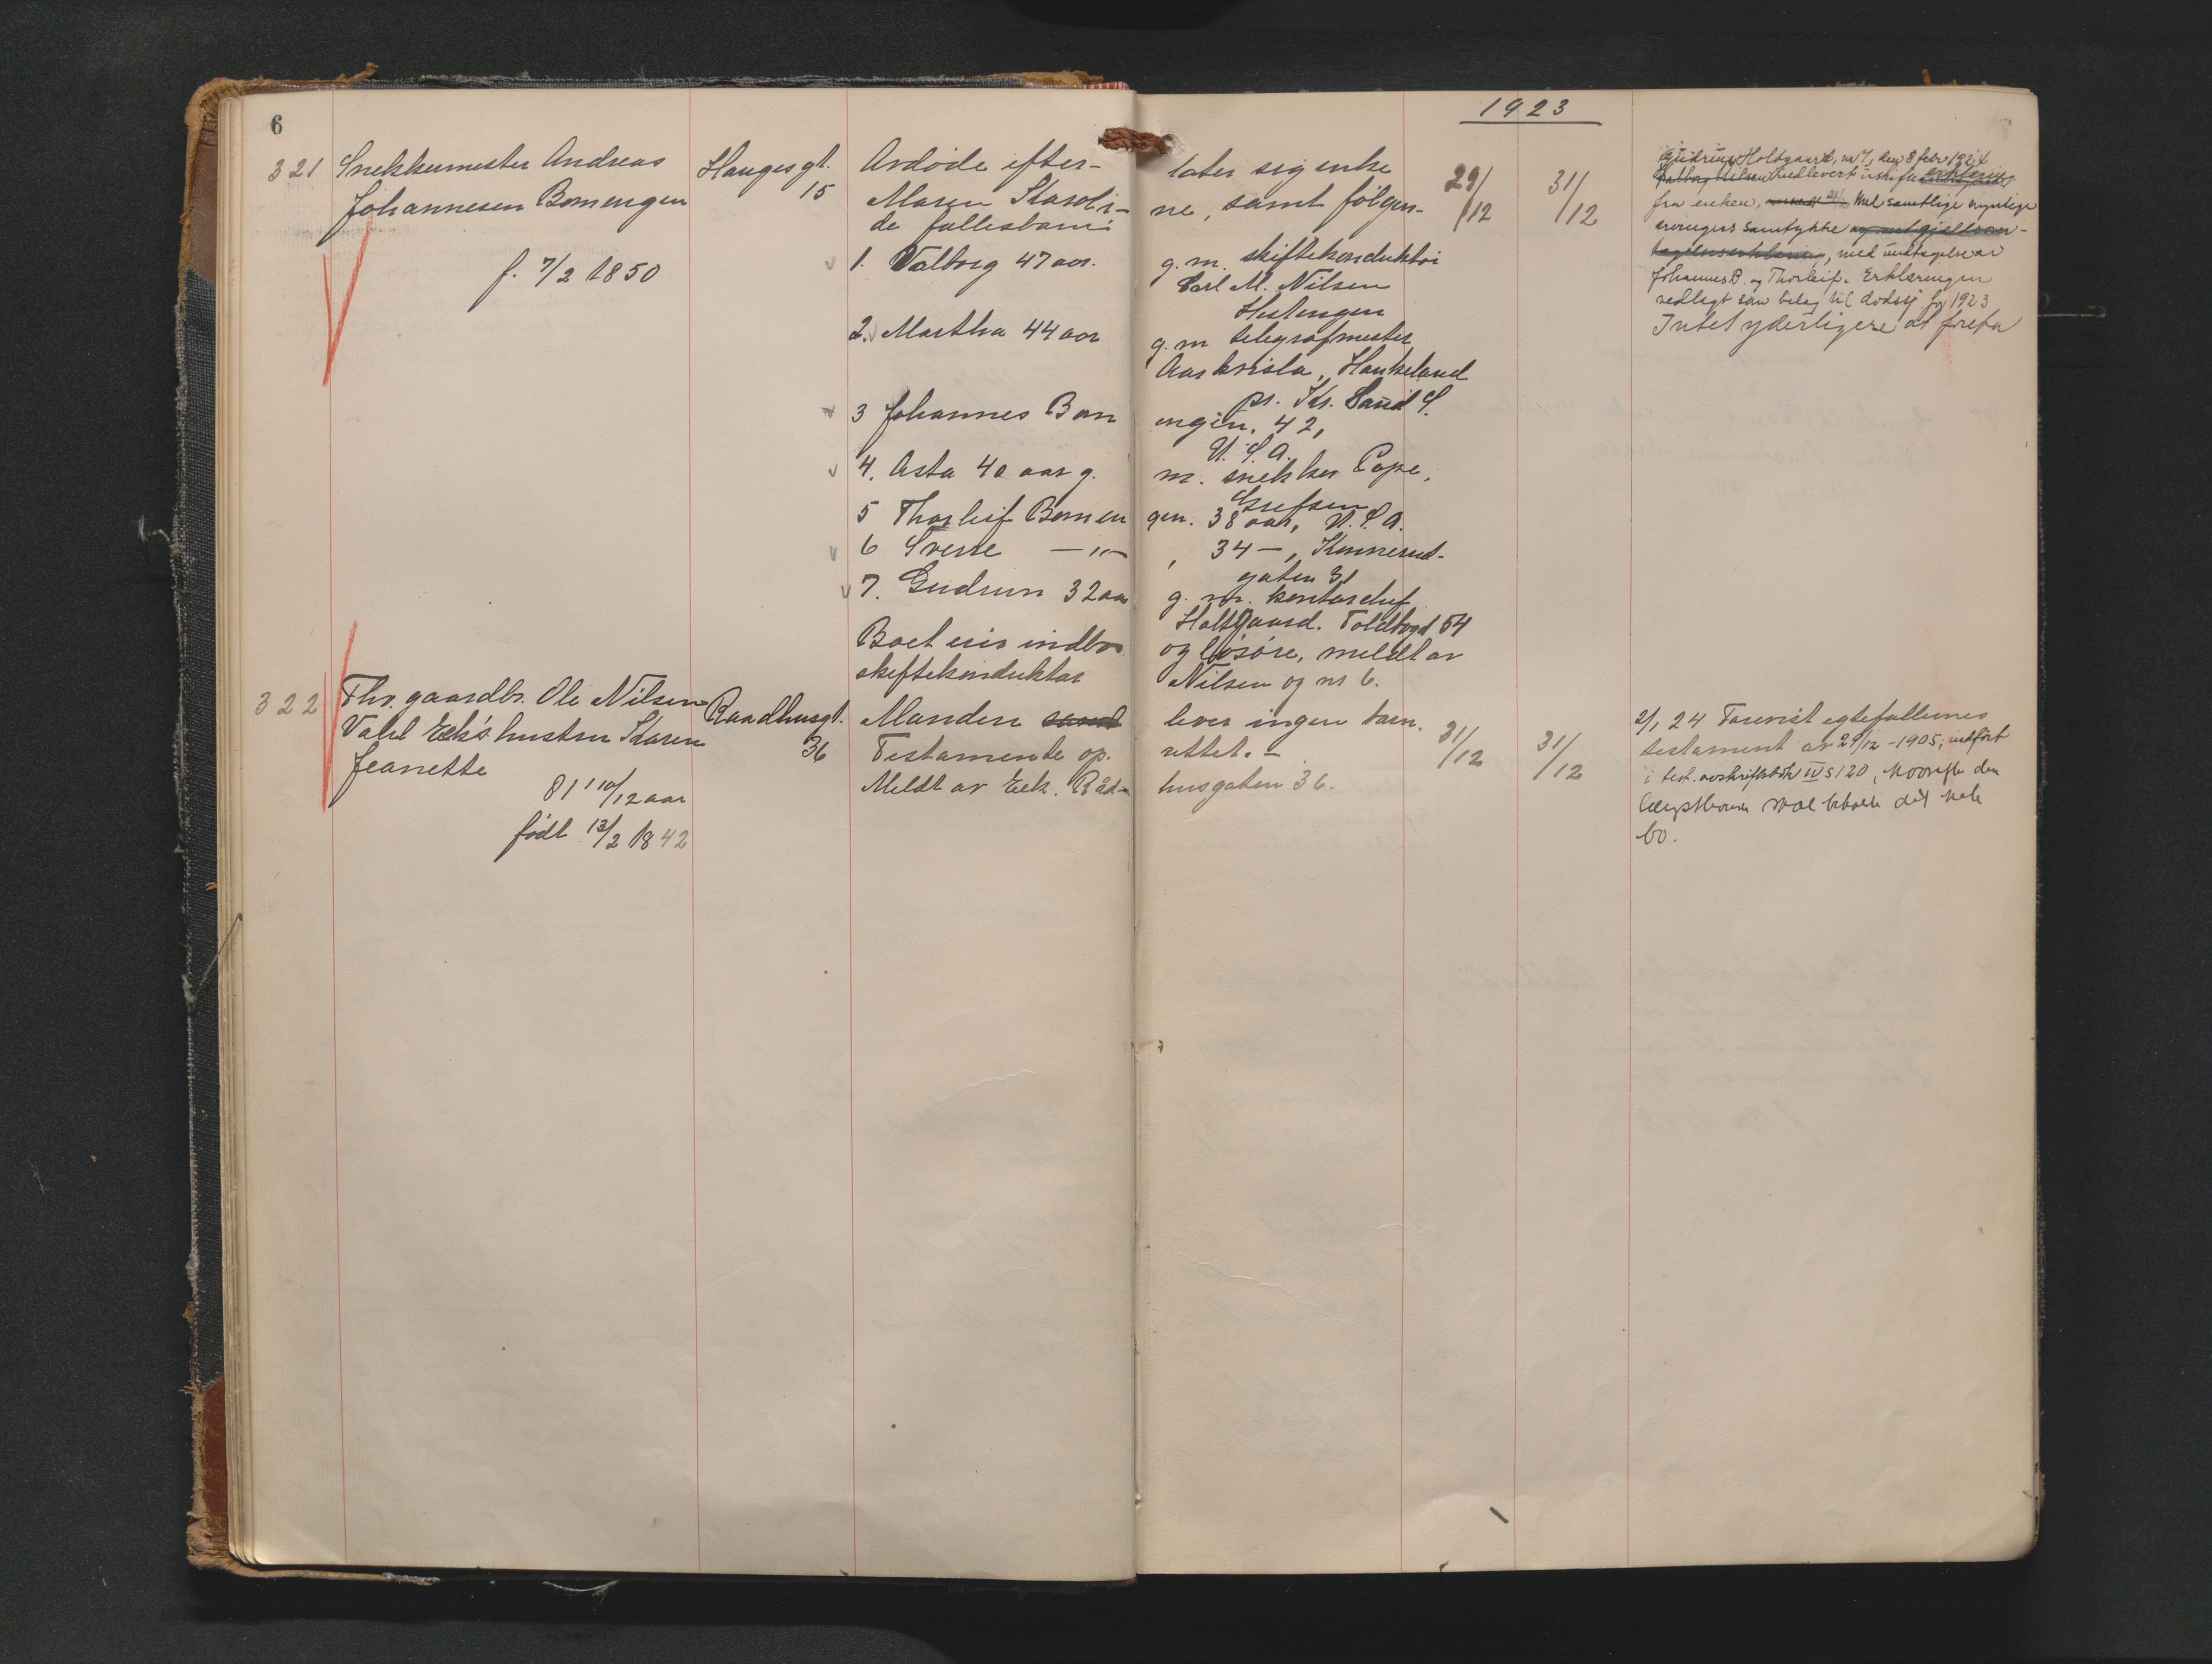 6
1923
321 Snekkermester Andreas
Johannesen Bomengen
f. 7/2 1850
Haugesgt.
15
Avdøde efter- later sig enke
Maren Karoli- ne, samt følgen-
de fællesbarn:
29/12 31/12
1. Valborg 47 aar. g. m. skiftekonduktør
Carl M. Nilsen
Hestengen
2. Martha 44 aar g. m telegrafmester
Aaskvisla, Hankeland
pr. Kr. Sand S.
3 Johannes Bom engen. 42,
U. S. A.
4. Asta 40 aar g. m. snekker Pope,
Grefsen
5 Thorleif Bomen gen. 38 aar, U. S. A.
6 Sverre —"— , 34 —, Konnerud-
gaten 31
7. Gudrun 32 aar g. m. kontorchef
Holtgaard. Toldbogt 54
Boet eier indbo og løsøre, meldt av
skiftekonduktør Nilsen og nr 6.
Gudrun Holtgaard, nr 7, den 8 febr 1924
Valborg Nilsen nedlevert uskifteerklæring
fra enken, med samtlige myndige
arvingers samtykke
, med undtagelse av
Johannes B. og Thorleif. Erklæringen
vedlagt som bilag til dødsfj. for 1923
Intet yderligere at foreta
322 Fhv. gaardbr. Ole Nilsen
Vahl Eek's hustru Karen
Jeanette
81 10/12 aar
født 13/2 1842
Raadhusgt.
36
Manden samt lever ingen barn.
Testamente op- rettet. –
Meldt av Eek. Råd- husgaten 36.
31/12 31/12
2/1 24 Forevist egtefællernes
testament av 29/12 - 1905, indført
i test. avskriftsbok IV s 120, hvorefter den
længstlevende skal beholde det hele
bo.